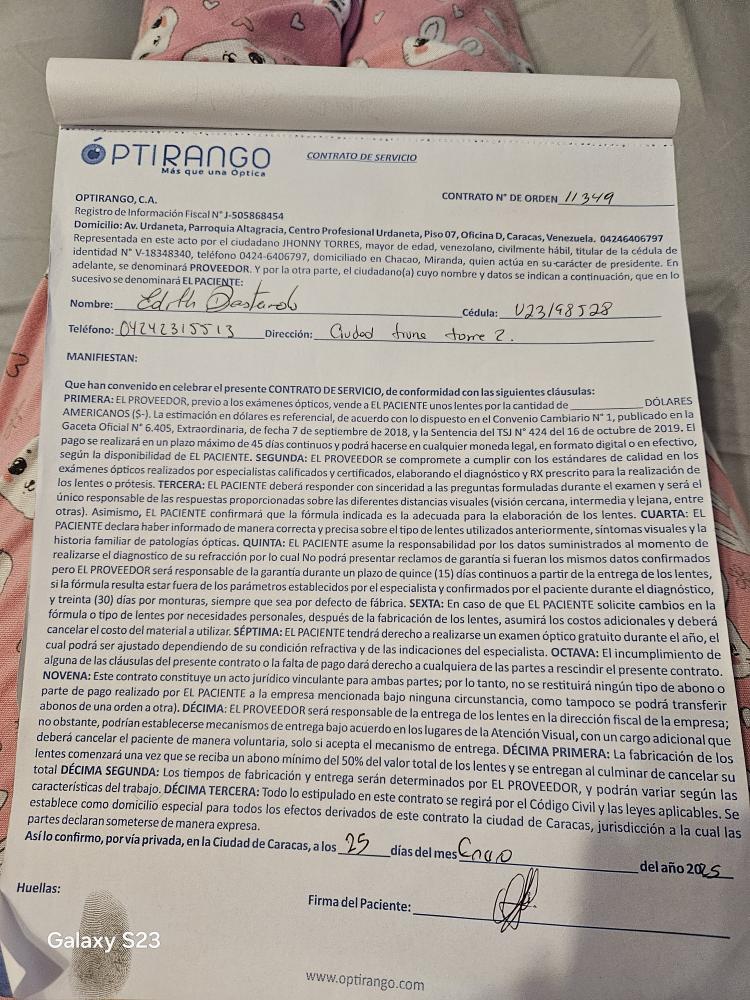 ÓPTIRANGO
Más que una Óptica
CONTRATO DE SERVICIO
OPTIRANGO, C.A.
CONTRATO N° DE ORDEN 11349
Registro de Información Fiscal N° J-505868454
Domicilio: Av. Urdaneta, Parroquia Altagracia, Centro Profesional Urdaneta, Piso 07, Oficina D, Caracas, Venezuela. 04246406797
Representada en este acto por el ciudadano JHONNY TORRES, mayor de edad, venezolano, civilmente hábil, titular de la cédula de
identidad N° V-18348340, teléfono 0424-6406797, domiciliado en Chacao, Miranda, quien actúa en su carácter de presidente. En
adelante, se denominará PROVEEDOR. Y por la otra parte, el ciudadano(a) cuyo nombre y datos se indican a continuación, que en lo
sucesivo se denominará EL PACIENTE:
Nombre: Edith
Cédula: V23198528
Teléfono: 04242315513 Dirección: Ciudad torre 2.
MANIFIESTAN:
Que han convenido en celebrar el presente CONTRATO DE SERVICIO, de conformidad con las siguientes cláusulas:
PRIMERA: EL PROVEEDOR, previo a los exámenes ópticos, vende a EL PACIENTE unos lentes por la cantidad de ____________ DÓLARES
AMERICANOS ($-). La estimación en dólares es referencial, de acuerdo con lo dispuesto en el Convenio Cambiario N° 1, publicado en la
Gaceta Oficial N° 6.405, Extraordinaria, de fecha 7 de septiembre de 2018, y la Sentencia del TSJ N° 424 del 16 de octubre de 2019. El
pago se realizará en un plazo máximo de 45 días continuos y podrá hacerse en cualquier moneda legal, en formato digital o en efectivo,
según la disponibilidad de EL PACIENTE. SEGUNDA: EL PROVEEDOR se compromete a cumplir con los estándares de calidad en los
exámenes ópticos realizados por especialistas calificados y certificados, elaborando el diagnóstico y RX prescrito para la realización de
los lentes o prótesis. TERCERA: EL PACIENTE deberá responder con sinceridad a las preguntas formuladas durante el examen y será el
único responsable de las respuestas proporcionadas sobre las diferentes distancias visuales (visión cercana, intermedia y lejana, entre
otras). Asimismo, EL PACIENTE confirmará que la fórmula indicada es la adecuada para la elaboración de los lentes. CUARTA: EL
PACIENTE declara haber informado de manera correcta y precisa sobre el tipo de lentes utilizados anteriormente, síntomas visuales y la
historia familiar de patologías ópticas. QUINTA: EL PACIENTE asume la responsabilidad por los datos suministrados al momento de
realizarse el diagnostico de su refracción por lo cual No podrá presentar reclamos de garantía si fueran los mismos datos confirmados
pero EL PROVEEDOR será responsable de la garantía durante un plazo de quince (15) días continuos a partir de la entrega de los lentes,
si la fórmula resulta estar fuera de los parámetros establecidos por el especialista y confirmados por el paciente durante el diagnóstico,
y treinta (30) días por monturas, siempre que sea por defecto de fábrica. SEXTA: En caso de que EL PACIENTE solicite cambios en la
fórmula o tipo de lentes por necesidades personales, después de la fabricación de los lentes, asumirá los costos adicionales y deberá
cancelar el costo del material a utilizar. SÉPTIMA: EL PACIENTE tendrá derecho a realizarse un examen óptico gratuito durante el año, el
cual podrá ser ajustado dependiendo de su condición refractiva y de las indicaciones del especialista. OCTAVA: El incumplimiento de
alguna de las cláusulas del presente contrato o la falta de pago dará derecho a cualquiera de las partes a rescindir el presente contrato.
NOVENA: Este contrato constituye un acto jurídico vinculante para ambas partes; por lo tanto, no se restituirá ningún tipo de abono o
parte de pago realizado por EL PACIENTE a la empresa mencionada bajo ninguna circunstancia, como tampoco se podrá transferir
abonos de una orden a otra). DÉCIMA: EL PROVEEDOR será responsable de la entrega de los lentes en la dirección fiscal de la empresa;
no obstante, podrían establecerse mecanismos de entrega bajo acuerdo en los lugares de la Atención Visual, con un cargo adicional que
deberá cancelar el paciente de manera voluntaria, solo si acepta el mecanismo de entrega. DÉCIMA PRIMERA: La fabricación de los
lentes comenzará una vez que se reciba un abono mínimo del 50% del valor total de los lentes y se entregan al culminar de cancelar su
total DÉCIMA SEGUNDA: Los tiempos de fabricación y entrega serán determinados por EL PROVEEDOR, y podrán variar según las
características del trabajo. DÉCIMA TERCERA: Todo lo estipulado en este contrato se regirá por el Código Civil y las leyes aplicables. Se
establece como domicilio especial para todos los efectos derivados de este contrato la ciudad de Caracas, jurisdicción a la cual las
partes declaran someterse de manera expresa.
Así lo confirmo, por vía privada, en la Ciudad de Caracas, a los 25 días del mes Enero del año 2025
Huellas:
Firma del Paciente:
Galaxy S23
www.optirango.com